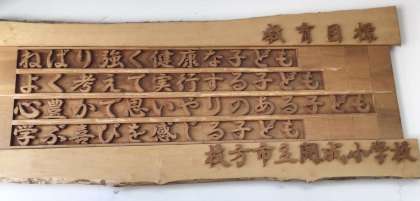 教育目標
ねばり強く健康な子ども
よく考えて実行する子ども
心豊かで思いやりのある子ども
学ぶ喜びを感じる子ども
枚方市立開成小学校